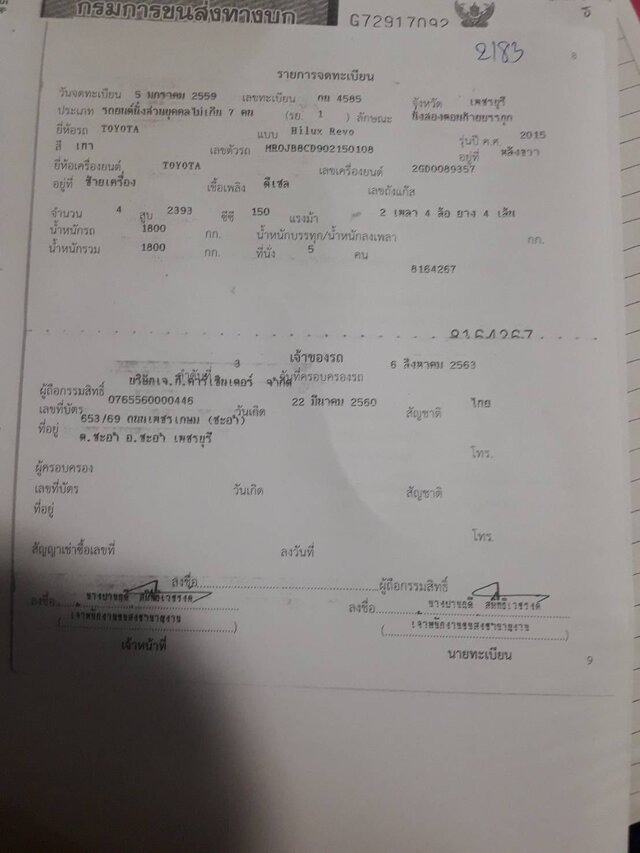 กรมการขนส่งทางบก
G72917092
2183
8
รายการจดทะเบียน
วันจดทะเบียน 5 มกราคม 2559 เลขทะเบียน กน 4585 จังหวัด เพชรบุรี
ประเภท รถยนต์นั่งส่วนบุคคลไม่เกิน 7 คน (รย. 1 ) ลักษณะ นั่งสองตอนท้ายบรรทุก
ยี่ห้อรถ TOYOTA แบบ Hilux Revo รุ่นปี ค.ศ. 2015
สี เทา เลขตัวรถ MR0JB8CD902150108 อยู่ที่ หลังขวา
ยี่ห้อเครื่องยนต์ TOYOTA เลขเครื่องยนต์ 2GD0089357
อยู่ที่ ซ้ายเครื่อง เชื้อเพลิง ดีเซล เลขถังแก๊ส
จำนวน 4 สูบ 2393 ซีซี 150 แรงม้า 2 เพลา 4 ล้อ ยาง 4 เส้น
น้ำหนักรถ 1800 กก. น้ำหนักบรรทุก/น้ำหนักลงเพลา กก.
น้ำหนักรวม 1800 กก. ที่นั่ง 5 คน
8164267
8164267
เจ้าของรถ
ลำดับที่ 3 วันที่ครอบครองรถ 6 สิงหาคม 2563
ผู้ถือกรรมสิทธิ์ บริษัทเจ.ที.คาร์เซ็นเตอร์ จำกัด
เลขที่บัตร 0765560000446 วันเกิด 22 มีนาคม 2560 สัญชาติ ไทย
ที่อยู่ 653/69 ถนนเพชรเกษม (ชะอำ)
ต.ชะอำ อ.ชะอำ เพชรบุรี
โทร.
ผู้ครอบครอง
เลขที่บัตร วันเกิด สัญชาติ
ที่อยู่
โทร.
สัญญาเช่าซื้อเลขที่ ลงวันที่
ลงชื่อ ผู้ถือกรรมสิทธิ์
ลงชื่อ ลงชื่อ
(เจ้าพนักงานขนส่งชำนาญงาน) (เจ้าพนักงานขนส่งชำนาญงาน)
เจ้าหน้าที่ นายทะเบียน
9